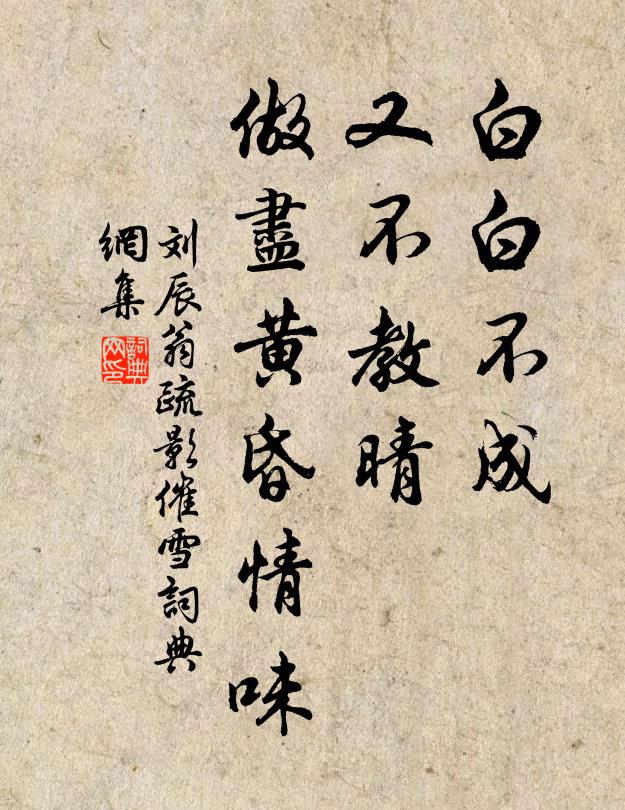 白白不成
又不教晴
做盡黄昏情味
刘辰翁疏影催雪詞典
網集
詞典
网印